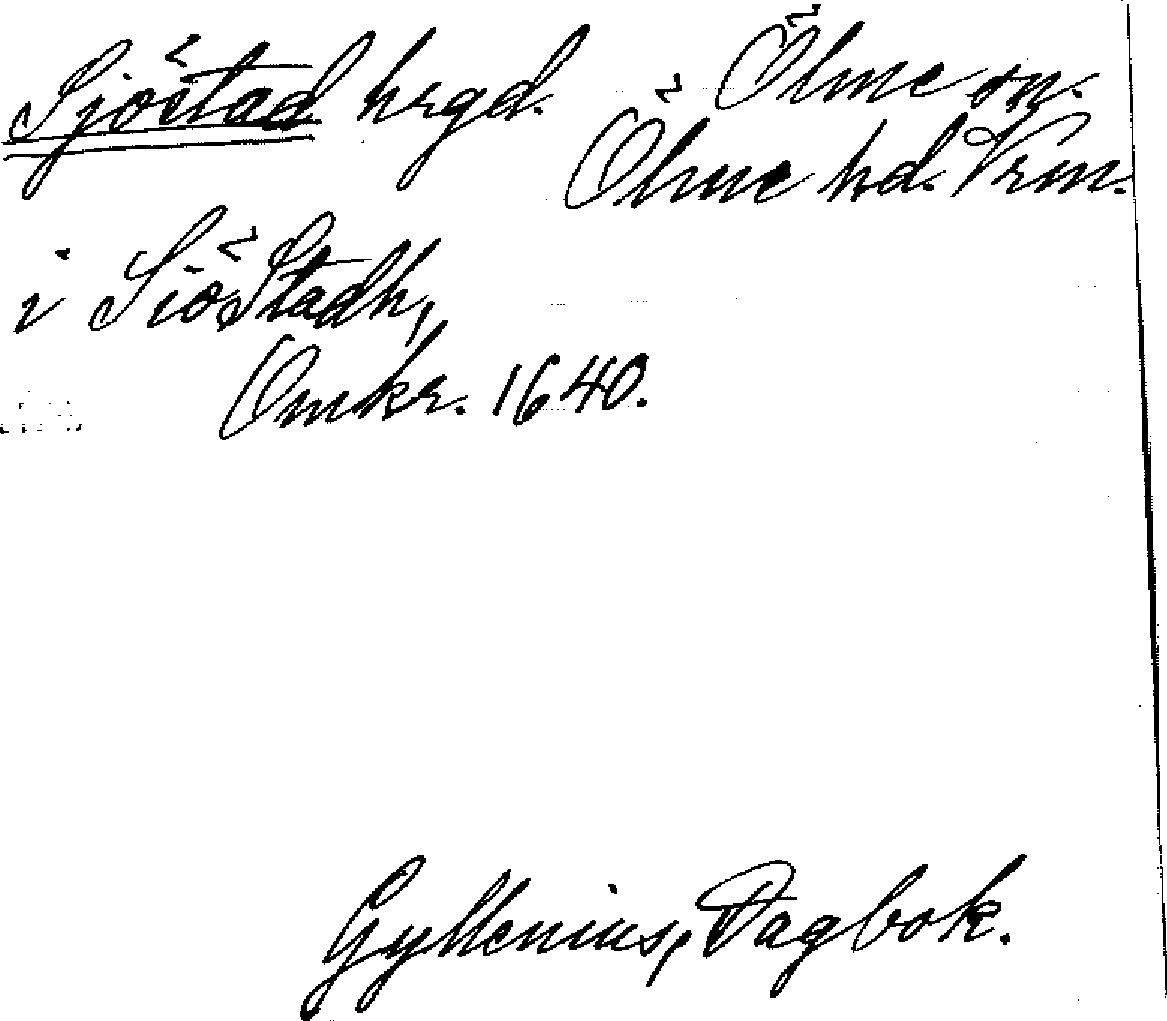 Sjöstad hrgd. Ölme sn.
Ölme hd. Vrm.
i SiöStadh,
Omkr. 1640.
Gyllenius, Dagbok.